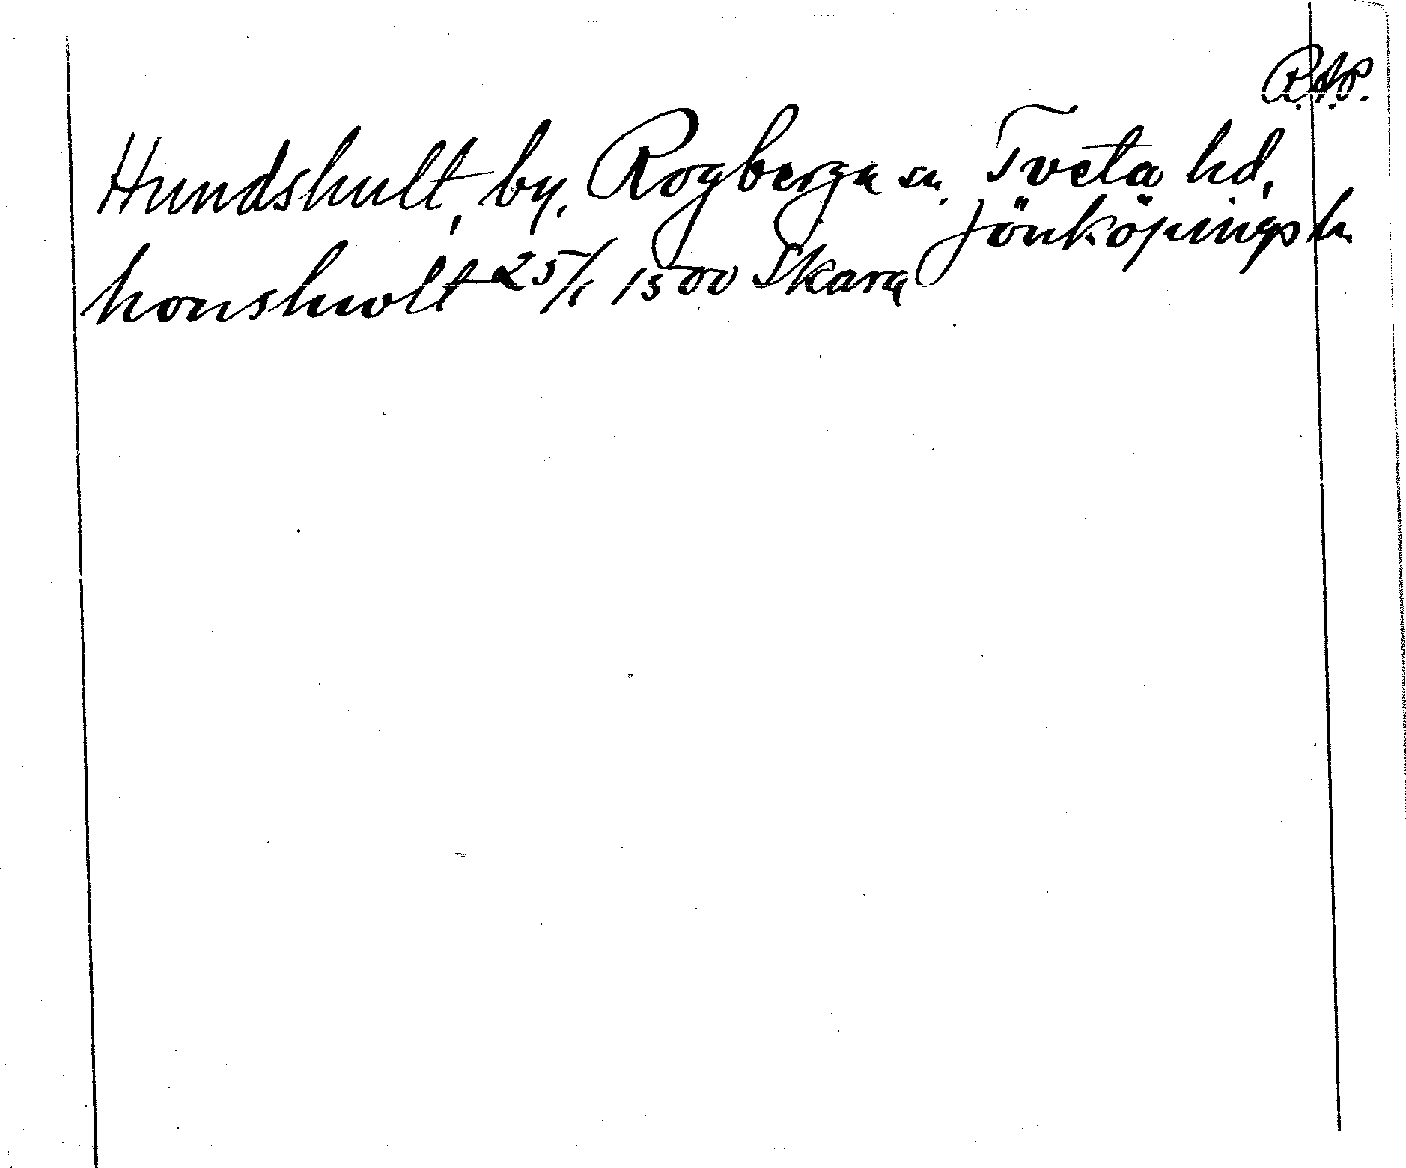 R.A.P.
Hundshult, by, Rogberga sn. Tveta hd,
Jönköpings l.
honshwlt 25/1 1500 Skara